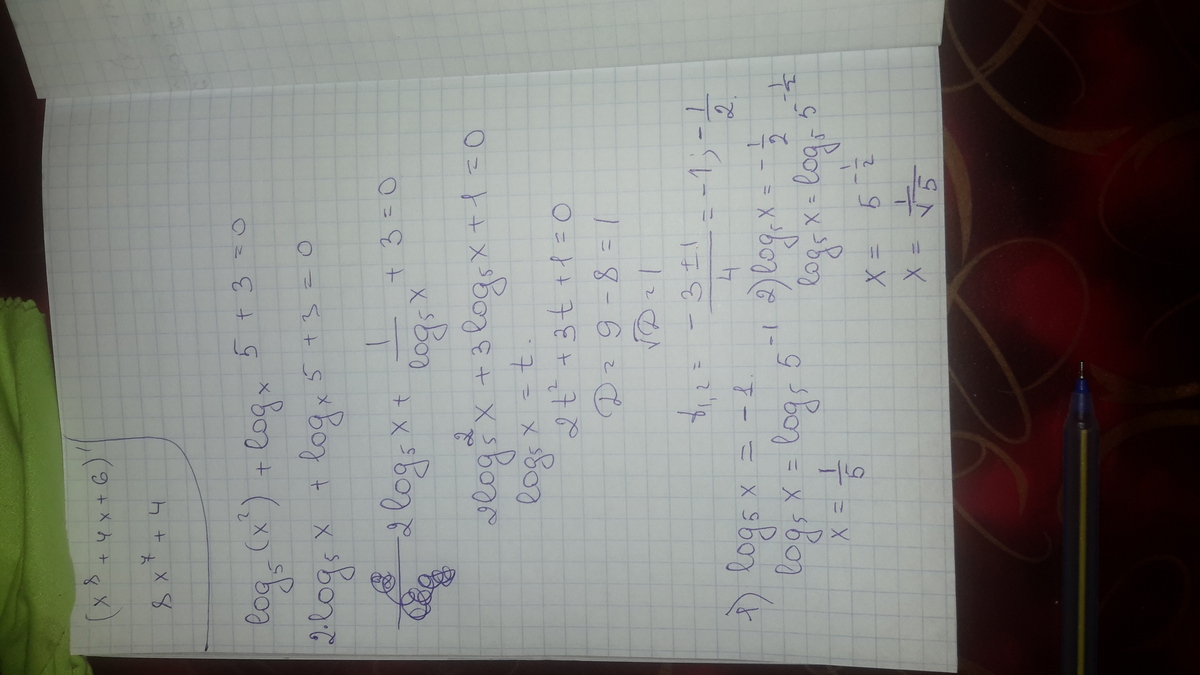 (x⁸ + 4x + 6)'
8x⁷ + 4
log₅(x²) + logₓ 5 + 3 = 0
2·log₅ x + logₓ 5 + 3 = 0
2 log₅ x + 1/log₅ x + 3 = 0
2log₅² x + 3 log₅ x + 1 = 0
log₅ x = t.
2t² + 3t + 1 = 0
D = 9 - 8 = 1
√D = 1
t₁,₂ = (-3 ± 1)/4 = -1; -1/2.
1) log₅ x = -1.
log₅ x = log₅ 5⁻¹
x = 1/5
2) log₅ x = -1/2
log₅ x = log₅ 5^(-1/2)
x = 5^(-1/2)
x = 1/√5